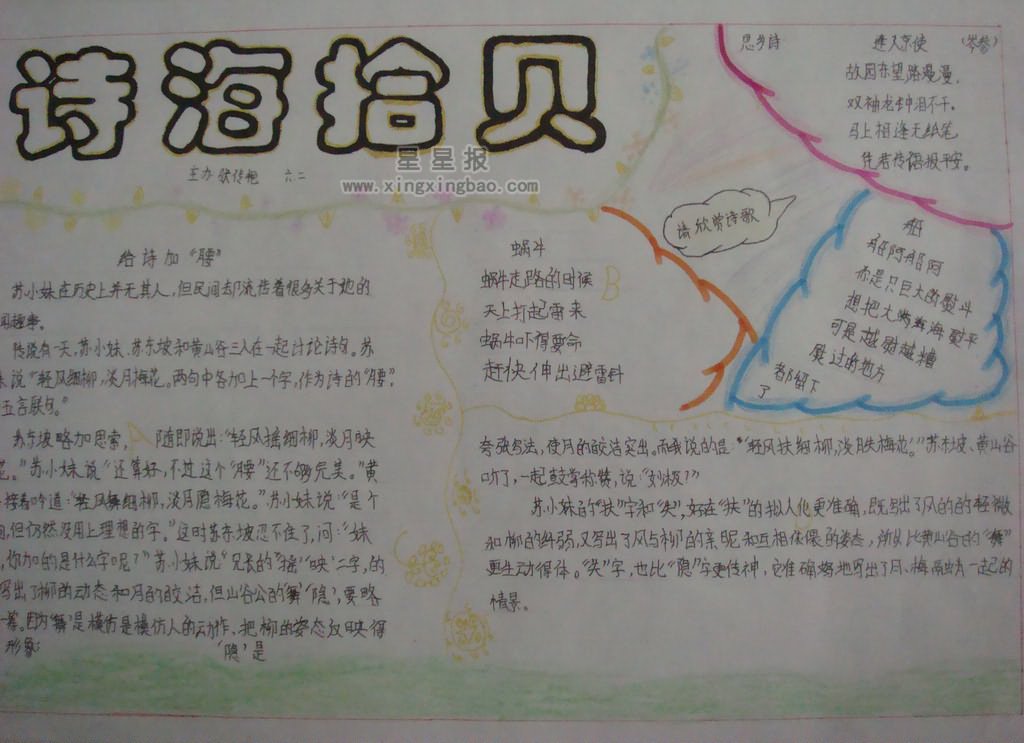 诗海拾贝
主办 六二
星星报
www.xingxingbao.com
思乡诗 逢入京使 (岑参)
故园东望路漫漫,
双袖龙钟泪不干。
马上相逢无纸笔
凭君传语报平安。
请欣赏诗歌
给诗加“腰”
苏小妹在历史上并无其人,但民间却流传着很多关于她的
趣事。
传说有一天,苏小妹、苏东坡和黄山谷三人在一起讨论诗句。苏
说“轻风细柳,淡月梅花。两句中各加上一个字,作为诗的“腰”,
五言联句。”
苏东坡略加思索, 随即说出:“轻风摇细柳,淡月映
。”苏小妹说“还算好,不过这个“腰”还不够完美。”黄
接着吟道:“轻风舞细柳,淡月隐梅花。”苏小妹说:“是个
,但仍然没用上理想的字。”这时苏东坡忍不住了,问:“妹
,你加的是什么字呢?”苏小妹说“兄长的‘摇’‘映’二字,的
写出了柳的动态和月的皎洁,但山谷公的‘舞’‘隐’,要略
一筹。因为‘舞’是模仿是模仿人的动作,把柳的姿态反映得
形象; ‘隐’是
蜗牛
蜗牛走路的时候
天上打起雷来
蜗牛吓得要命
赶快伸出避雷针
船
船阿船阿
你是只巨大的熨斗
想把大海熨平
可是越熨越糟
过的地方
都留下
了
夸张写法,使月的皎洁突出。而我说的是:“轻风扶细柳,淡月失梅花。”苏东坡、黄山谷
听了,一起鼓掌称赞,说:“妙极!”
苏小妹的“扶”字和“失”,好在“扶”的拟人化更准确,既写出了风的的轻微
和柳的纤弱,又写出了风与柳的亲昵和互相依偎的姿态,所以比黄山谷的“舞”
更生动得体。“失”字,也比“隐”字更传神,它准确地写出了月、梅融为一起的
情景。